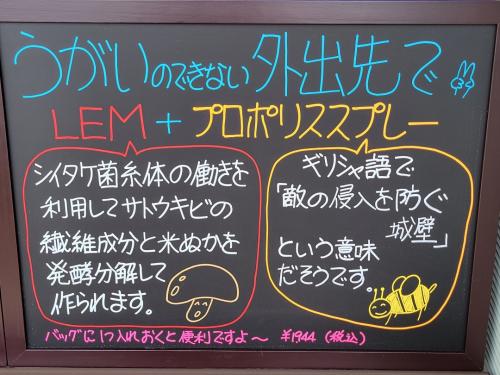 うがいのできない外出先で
LEM + プロポリススプレー
シイタケ菌糸体の働きを
利用してサトウキビの
繊維成分と米ぬかを
発酵分解して
作られます。
ギリシャ語で
「敵の侵入を防ぐ
城壁」
という意味
だそうです。
バッグに1つ入れおくと便利ですよ〜 ¥1944(税込)